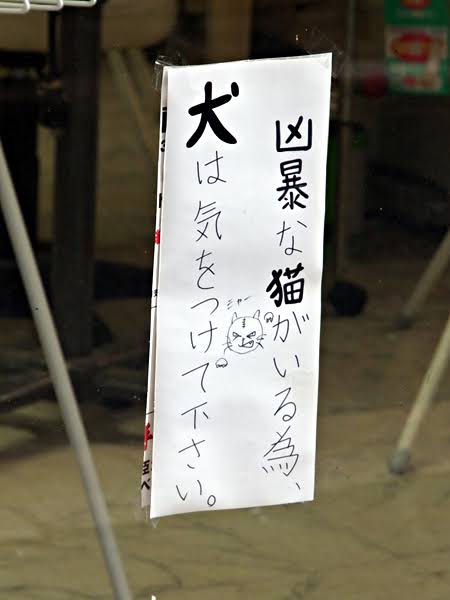 凶暴な猫がいる為、
犬は気をつけて下さい。
シャー